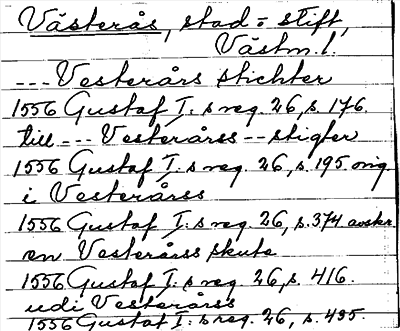 Västerås, stad o stift,
Västm. l.
--- Vesterårs stichter
1556 Gustaf I:s reg. 26, s. 176.
till --- Vesterårss -- stigter
1556 Gustaf I:s reg. 26, s. 195. orig.
i Vesterårss
1556 Gustaf I:s reg. 26, s. 374 avskr.
en Vesterårss skute
1556 Gustaf I:s reg. 26, s. 416.
udi Vesterårss
1556 Gustaf I:s reg. 26, s. 435.